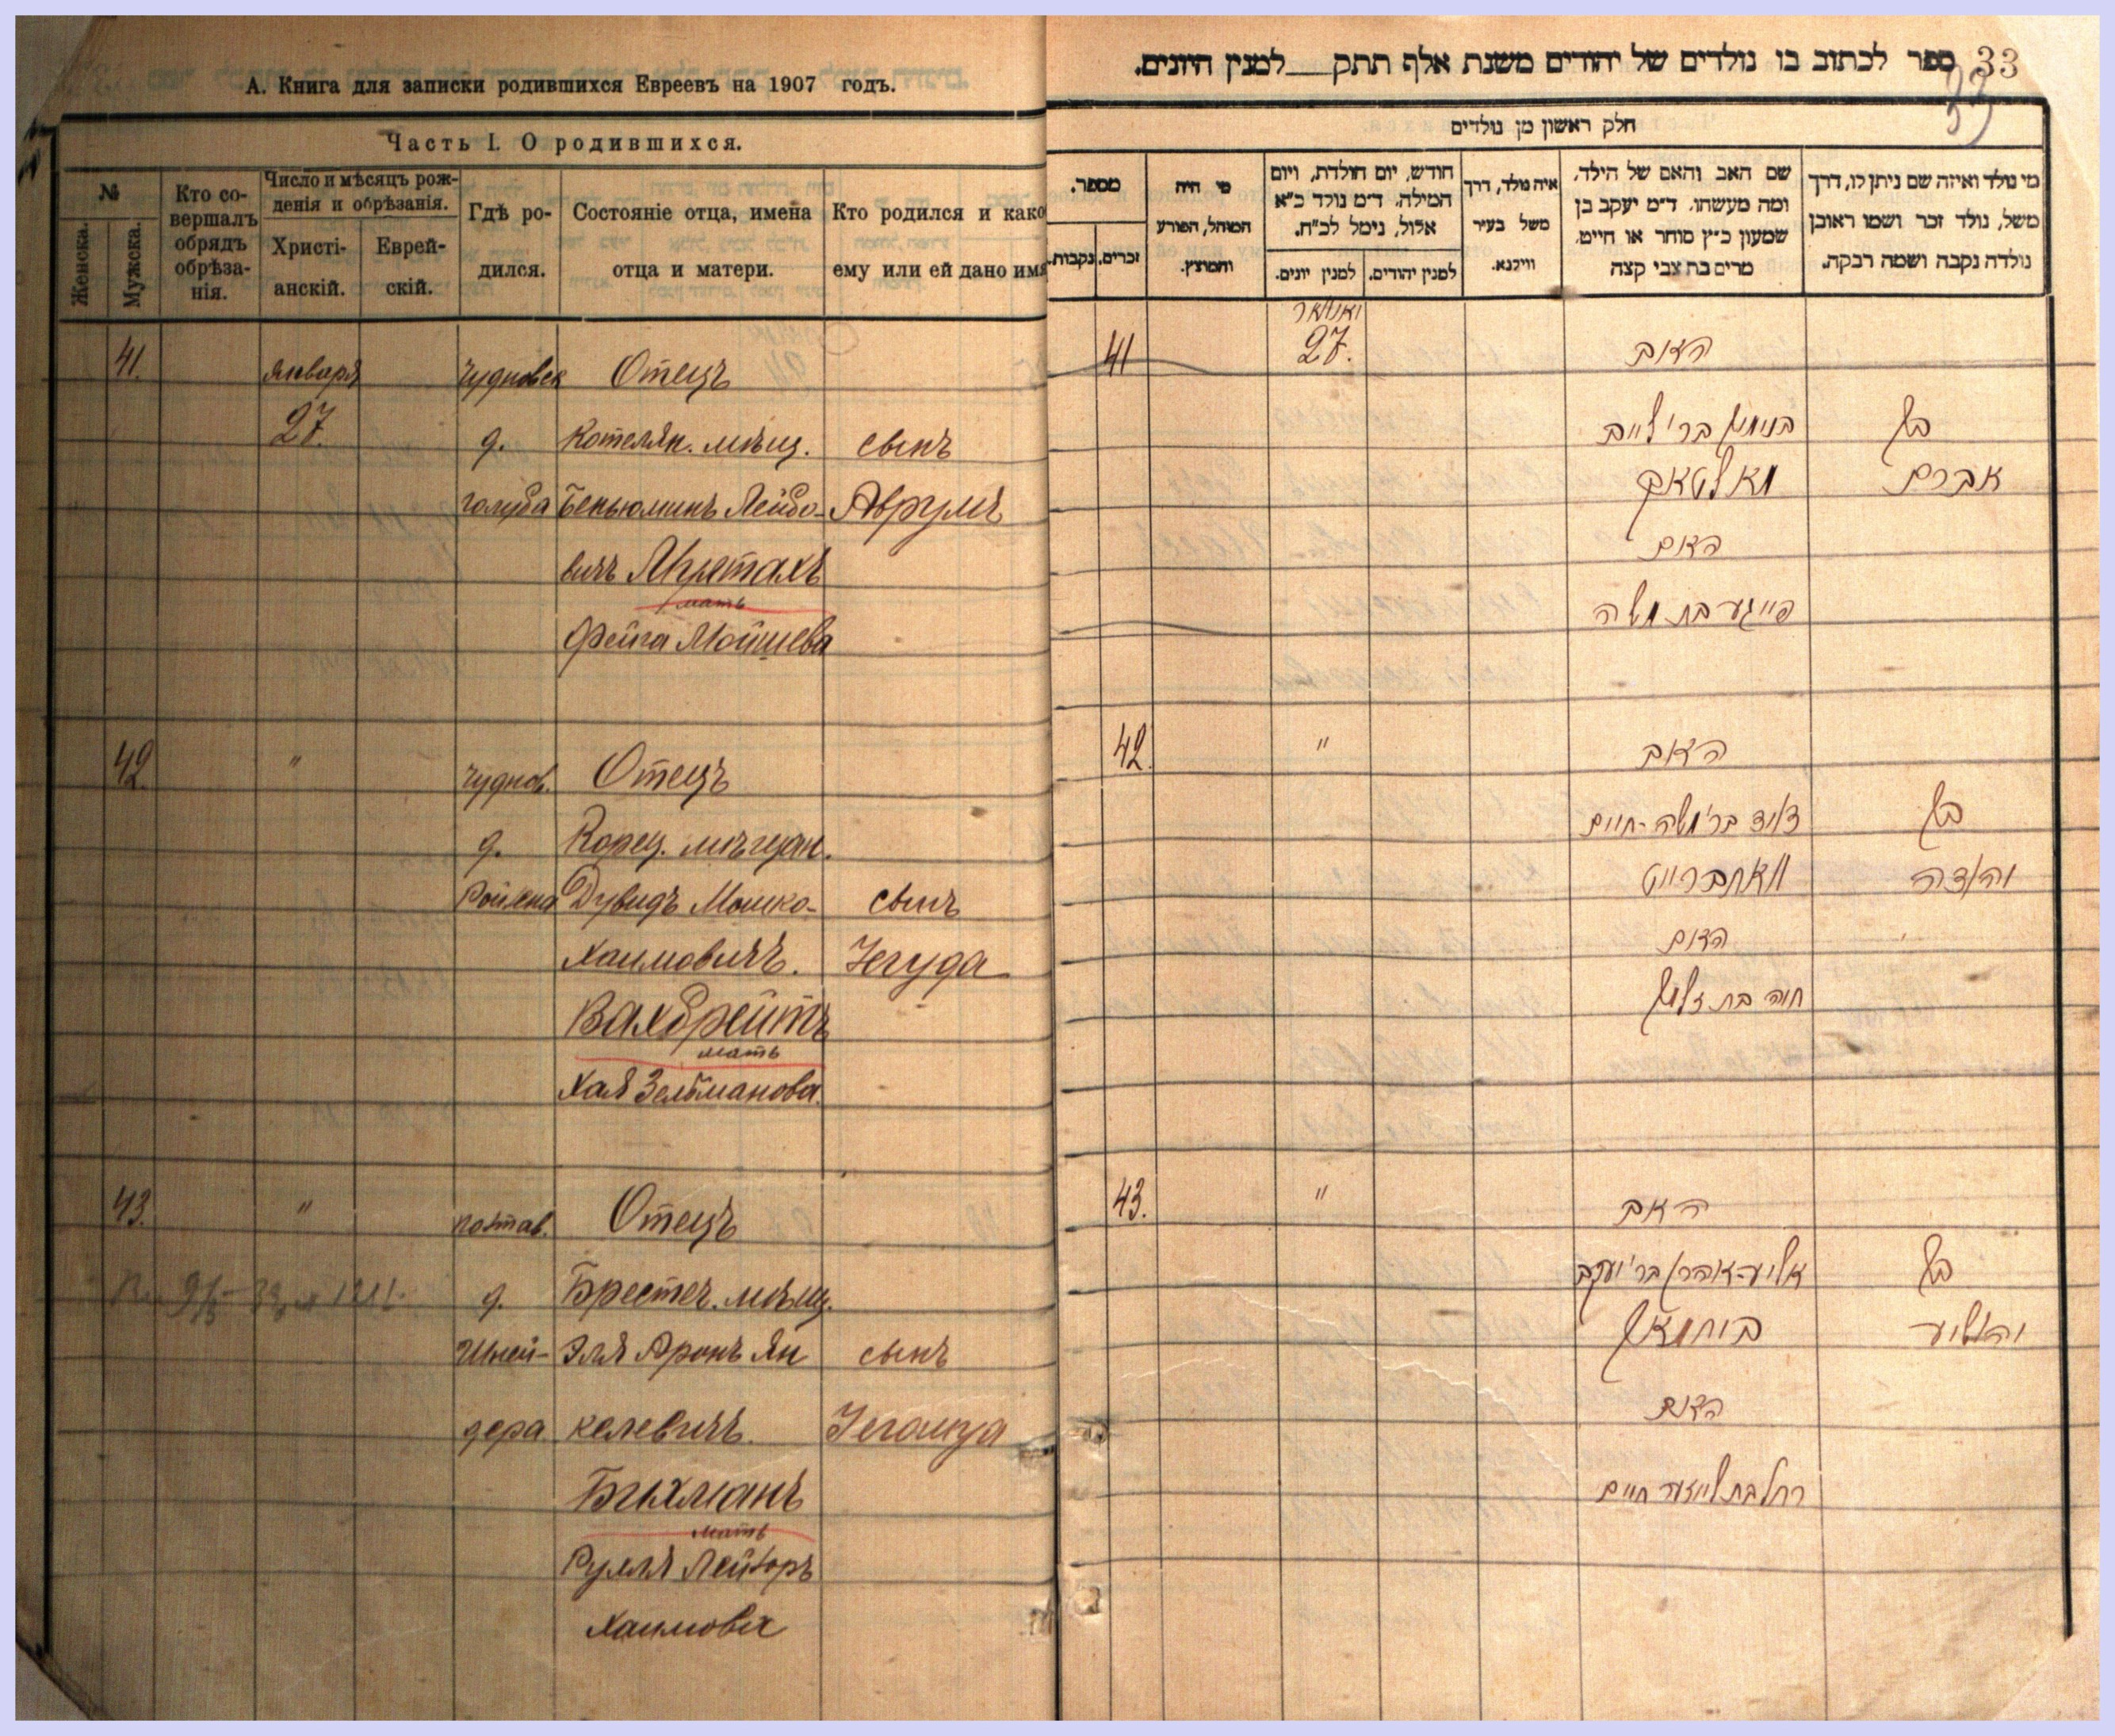 А. Книга для записки родившихся Евреевъ на 1907 годъ.
Часть I. О родившихся.
№
Женска.
Мужска.
Кто со-
вершалъ
обрядъ
обрѣза-
нія.
Число и мѣсяцъ рож-
денія и обрѣзанія.
Христі-
анскій.
Еврей-
скій.
Гдѣ ро-
дился.
Состояніе отца, имена
отца и матери.
Кто родился и како
ему или ей дано имя
41. января Чудновск Отецъ
27. д. Котелян. мѣщ. сынъ
голуба Беньюминъ Лейбо- Аврумъ
вичъ
мать
Фейга Мошева
42. " Чуднов. Отецъ
д. Корец. мѣщан.
Ройхена Дувидъ Мошко- сынъ
Хаимовичъ. Іегуда
Вахбрейтъ
мать
Хая Зельманова.
43. " полтав. Отецъ
д. Брестеч. мѣщ.
Шней- Эля Аронъ Ян сынъ
дера келевичъ. Іегошуа
Бихманъ
мать
Рухля Лейзоръ
Хаимова
33
ספר לכתוב בו נולדים של יהודים משנת אלף תתק__למנין היונים.
חלק ראשון מן נולדים
מי נולד ואיזה שם ניתן לו, דרך
משל, נולד זכר ושמו ראובן
נולדה נקבה ושמה רבקה.
שם האב והאם של הילד,
ומה מעשהו. ד״מ יעקב בן
שמעון כ״ץ סוחר או חייט.
מרים בת צבי קצה
איה נולד, דרך
משל בעיר
ווילנא.
חודש, יום הולדת, ויום
המילה. ד״מ נולד כ״א
אלול, נימל לכ״ח.
למנין יהודים.
למנין יונים.
מי היה
המוהל, הפורע
והמוצץ.
מספר.
זכרים.
נקבות.
41 יאנואר
27. האב
בנימין בר' לייב בן
אברם
האם
פייגע בת משה
42. " האב
דוד בר' משה-חיים בן
וואחברייט יהודה
האם
חוה בת זלמן
43. " האב
אליע-אהרן בר' יעקב בן
ביחמאן יהושוע
האם
רחל בת לייזער חיים